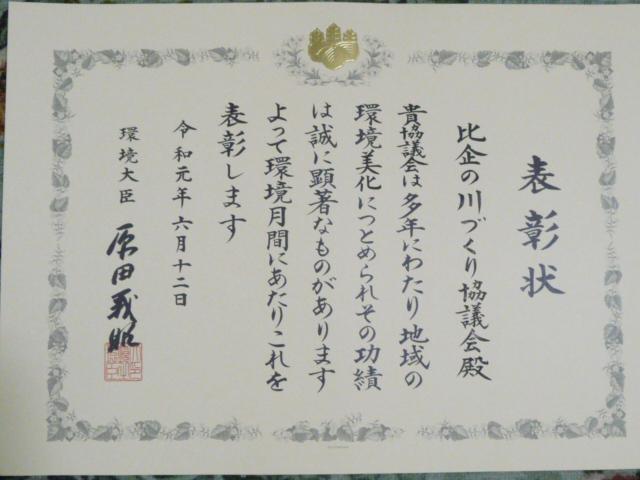 表彰状
比企の川づくり協議会殿
貴協議会は多年にわたり地域の
環境美化につとめられその功績
は誠に顕著なものがあります
よって環境月間にあたりこれを
表彰します
令和元年六月十二日
環境大臣
原田義昭